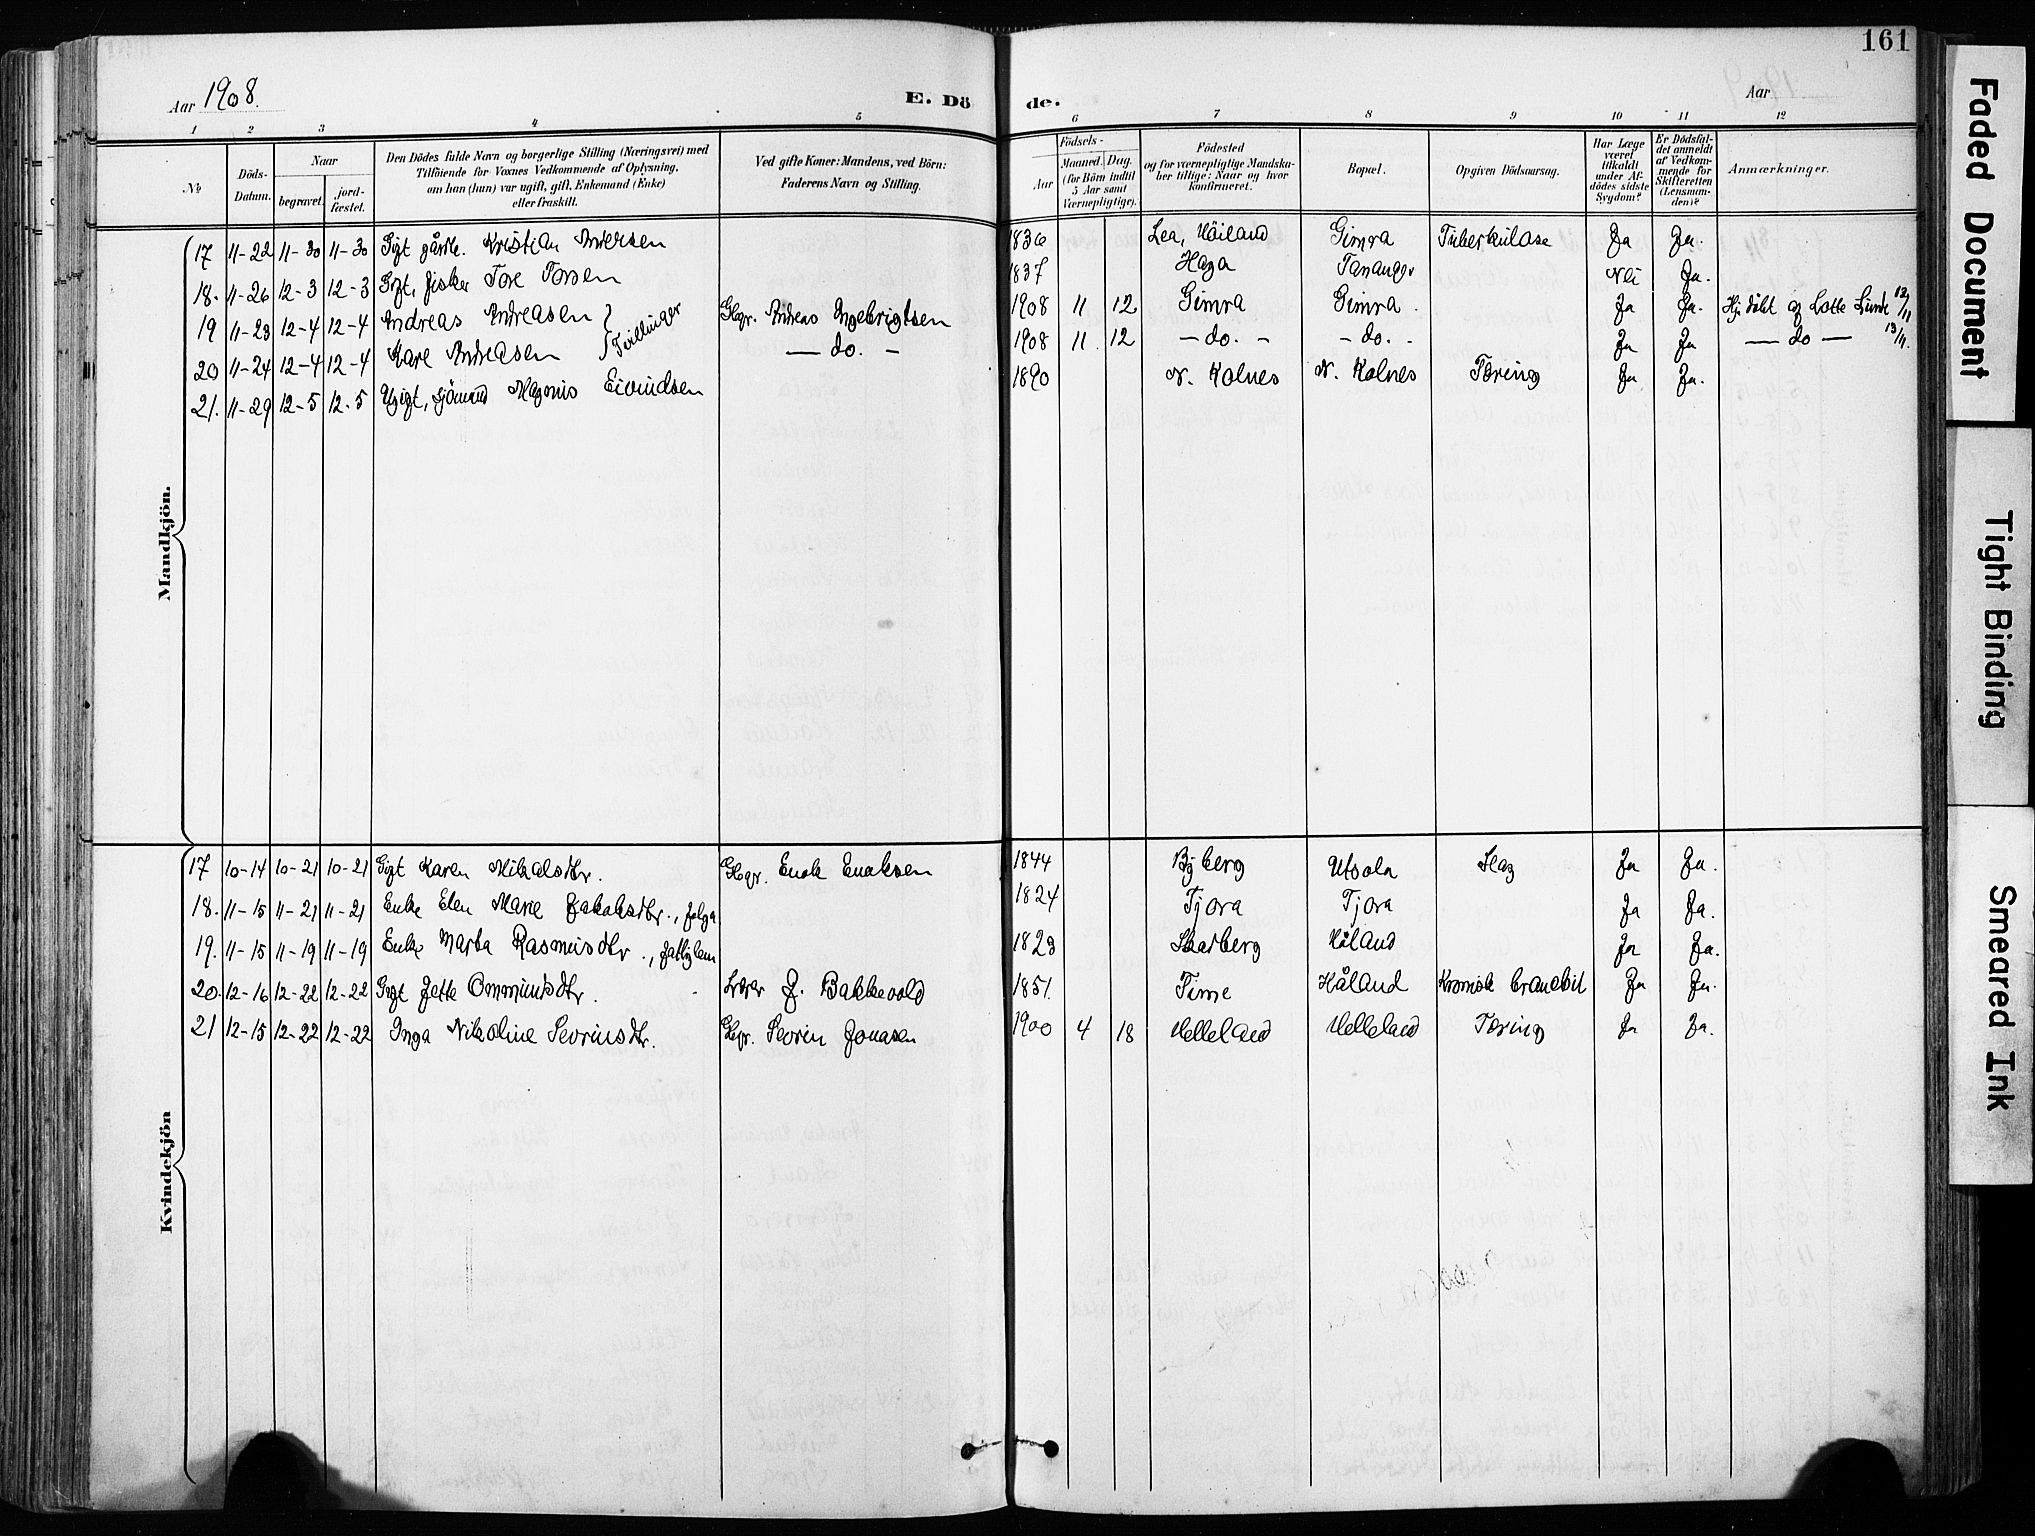 161
Aar 1908.
E. Dö
de.
Aar
1 2 3 4 5 6 7 8 9 10 11 12
№
Döds-Datum.
Naar
begravet.
jord-fæstet.
Den Dödes fulde Navn og borgerlige Stilling (Næringsvei) med
Tilföiende for Voxnes Vedkommende af Oplysning,
om han (hun) var ugift, gift, Enkemand (Enke)
eller fraskilt.
Ved gifte Koner: Mandens, ved Börn:
Faderens Navn og Stilling.
Födsels-
Aar
Maaned.
Dag.
(for Börn indtil
5 Aar samt
Værnepligtige).
Födested
og for værnepligtige Mandska-
ber tillige: Naar og hvor
konfirmeret.
Bopæl.
Opgiven Dödsaarsag.
Har Læge
været
tilkaldt
under Af-
dödes sidste
Sygdom?
Er Dödsfal-
det anmeldt
af Vedkom-
mende for
Skifteretten
(Lensman-
den)?
Anmærkninger.
Mandkjön.
17 11-22 11-30 11-30 Gift gårdb. Kristian Andersen 1836 Lea, Höiland Gimra Tuberkulose Ja Ja.
18. 11-26 12-3 12-3 Gift, fisker Tore Torsen 1837 Haga Tananger Nei Ja.
19 11-23 12-4 12-4 Andreas Andreasen } Tvillinger Gbgr. Andreas Ingebrigtsen 1908 11 12 Gimra Gimra. Ja Ja. Hj. döbt af Lotte Lunde 12/11
20 11-24 12-4 12-4 Kare Andreasen — do. — 1908 11. 12 — do. — — do. — Ja Ja — do — 13/11.
21. 11-29 12-5 12-5 Ugift, sjömand Magnus Eivindsen 1890 N. Kolnes N. Kolnes Tæring Ja Ja.
Kvindekjön
17 10-14 10-21 10-21 Gift Karen Mikalsdtr. Gbgr. Enok Enoksen 1844 Byberg Utsola Slag Ja Ja.
18. 11-15 11-21 11-21 Enke Elen Marie Jakobsdtr., 1824 Tjora Tjora Ja Ja.
19. 11-15 11-19 11-19 Enke Marta Rasmusdtr., fattiglem 1823 Skarberg Håland Ja Ja.
20. 12-16 12-22 12-22 Gift Jette Ommundsdtr. Lærer J. Bakkevold 1851. Time Håland Kronisk bronchit Ja Ja.
21 12-15 12-22 12-22 Inga Nikoline Sevrinsdtr. Gbgr. Sevrin Jonasen 1900 4 18 Helleland Helleland Tæring Ja Ja.
Faded Document
Tight Binding
Smeared Ink